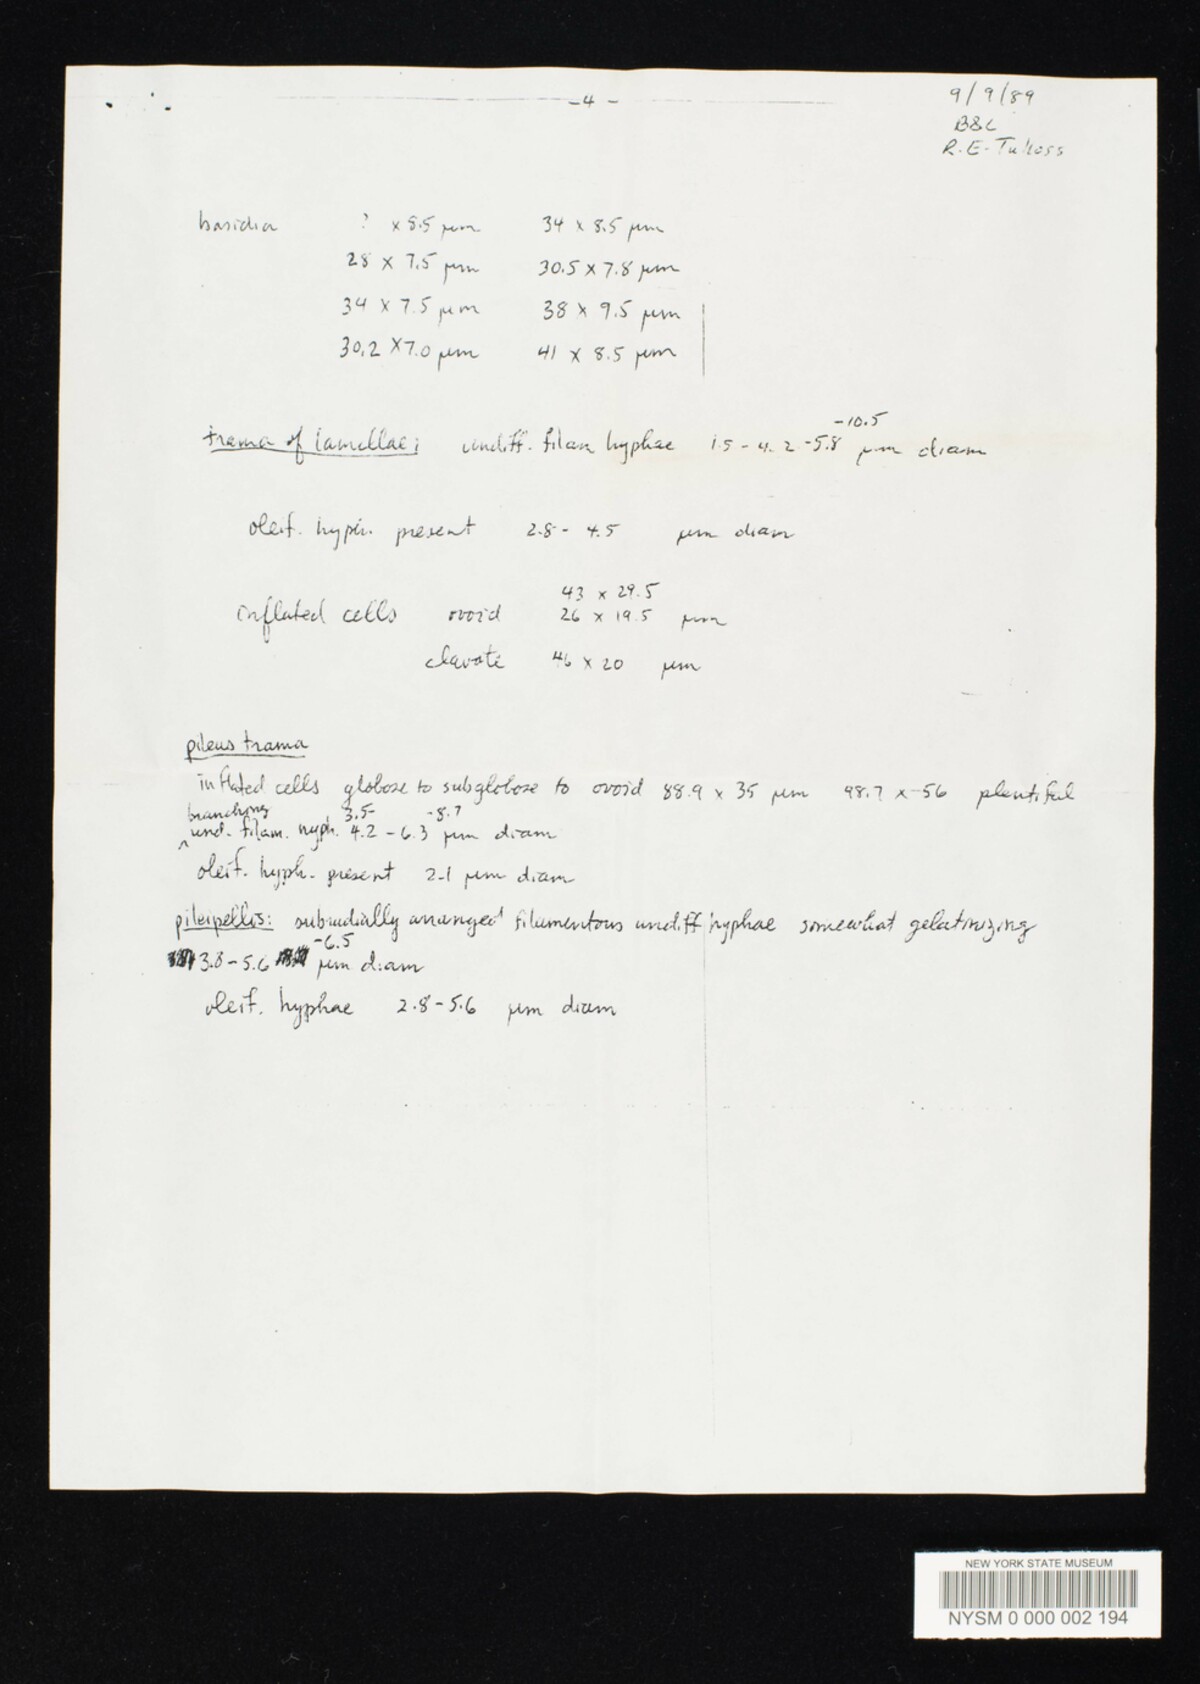 -4-
9/9/89
B&C
R.E. Tulloss
basidia ? x 8.5 µm 34 x 8.5 µm
28 x 7.5 µm 30.5 x 7.8 µm
34 x 7.5 µm 38 x 9.5 µm
30.2 x 7.0 µm 41 x 8.5 µm
-10.5
trama of lamellae: undiff. filam hyphae 1.5 - 4.2 - 5.8 µm diam
oleif. hyph. present 2.8 - 4.5 µm diam
43 x 29.5
inflated cells ovoid 26 x 19.5 µm
clavate 46 x 20 µm
pileus trama
inflated cells globose to subglobose to ovoid 88.9 x 35 µm 98.7 x 56 plentiful
branching 3.5- -8.7
und. filam. hyph. 4.2 - 6.3 µm diam
oleif. hyph. present 2.1 µm diam
pileipellis: subradially arranged filamentous undiff hyphae somewhat gelatinizing
-6.5
3.8 - 5.6 µm diam
oleif. hyphae 2.8 - 5.6 µm diam
NEW YORK STATE MUSEUM
NYSM 0 000 002 194